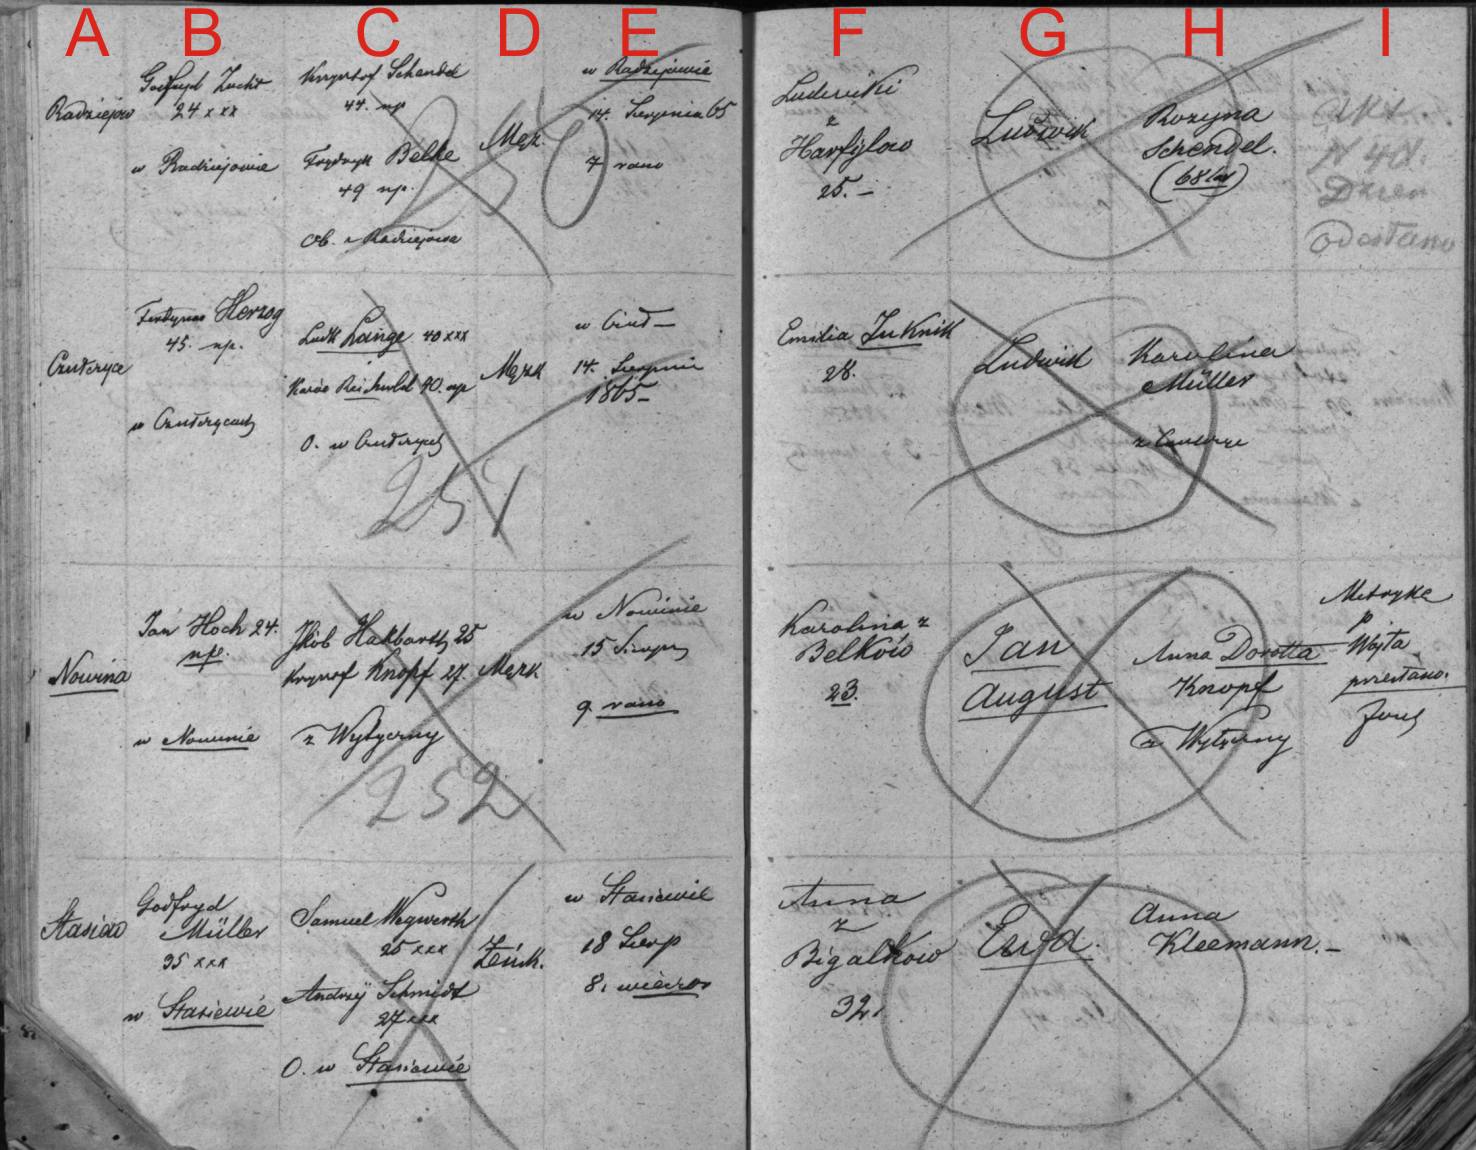 A B C D E F G H I
Radziejów
Gotfryd Zucht
24 xxx
w Radziejowie
Krzysztof Schendel
44. np
Frydryk Belke
49 np.
Ob. z Radziejowa
250
Męz.
w Radziejowie
14. Sierpnia 65
7 rano
Ludwiki
z
Harfylow
25. –
Ludwik
Rozyna
Schendel.
(68 lat)
Akt.
N 41.
Dzien
Odesłano
Ferdynand Herzog
45. np.
w Czułczycach
Ludk Lange 40 xxx
Karol Reichwald 40. np
O. w Czułczych
251
Męzk
14. Sierpnia
1865 –
Emilia
28.
Ludwick
Karolina
Müller
Nowina
Jan Hoch 24.
np.
w Nowinie
Jakób Hakbarth 25
Krysztof Knopf 27.
z Wytyczny
252
Męzk
w Nowinie
15 Sierpn
9. rano
Karolina z
Belków
23.
Jan
August
Anna Dorotta
Knopf
z Wytyczny
Metryka
p
Wojta
przesłano.
Stasiów
Godfryd
Müller
35 xxx
w Stasiewie
Samuel Wegwerth
25 xxx
Andrzÿ Schmidt
27 xxx
O. w Stasiewie
Żeńsk.
w Stasiewie
18 Sierp
8. wieczor
Anna
z
Bigalkow
32.
Ewa.
Anna
Kleemann. –